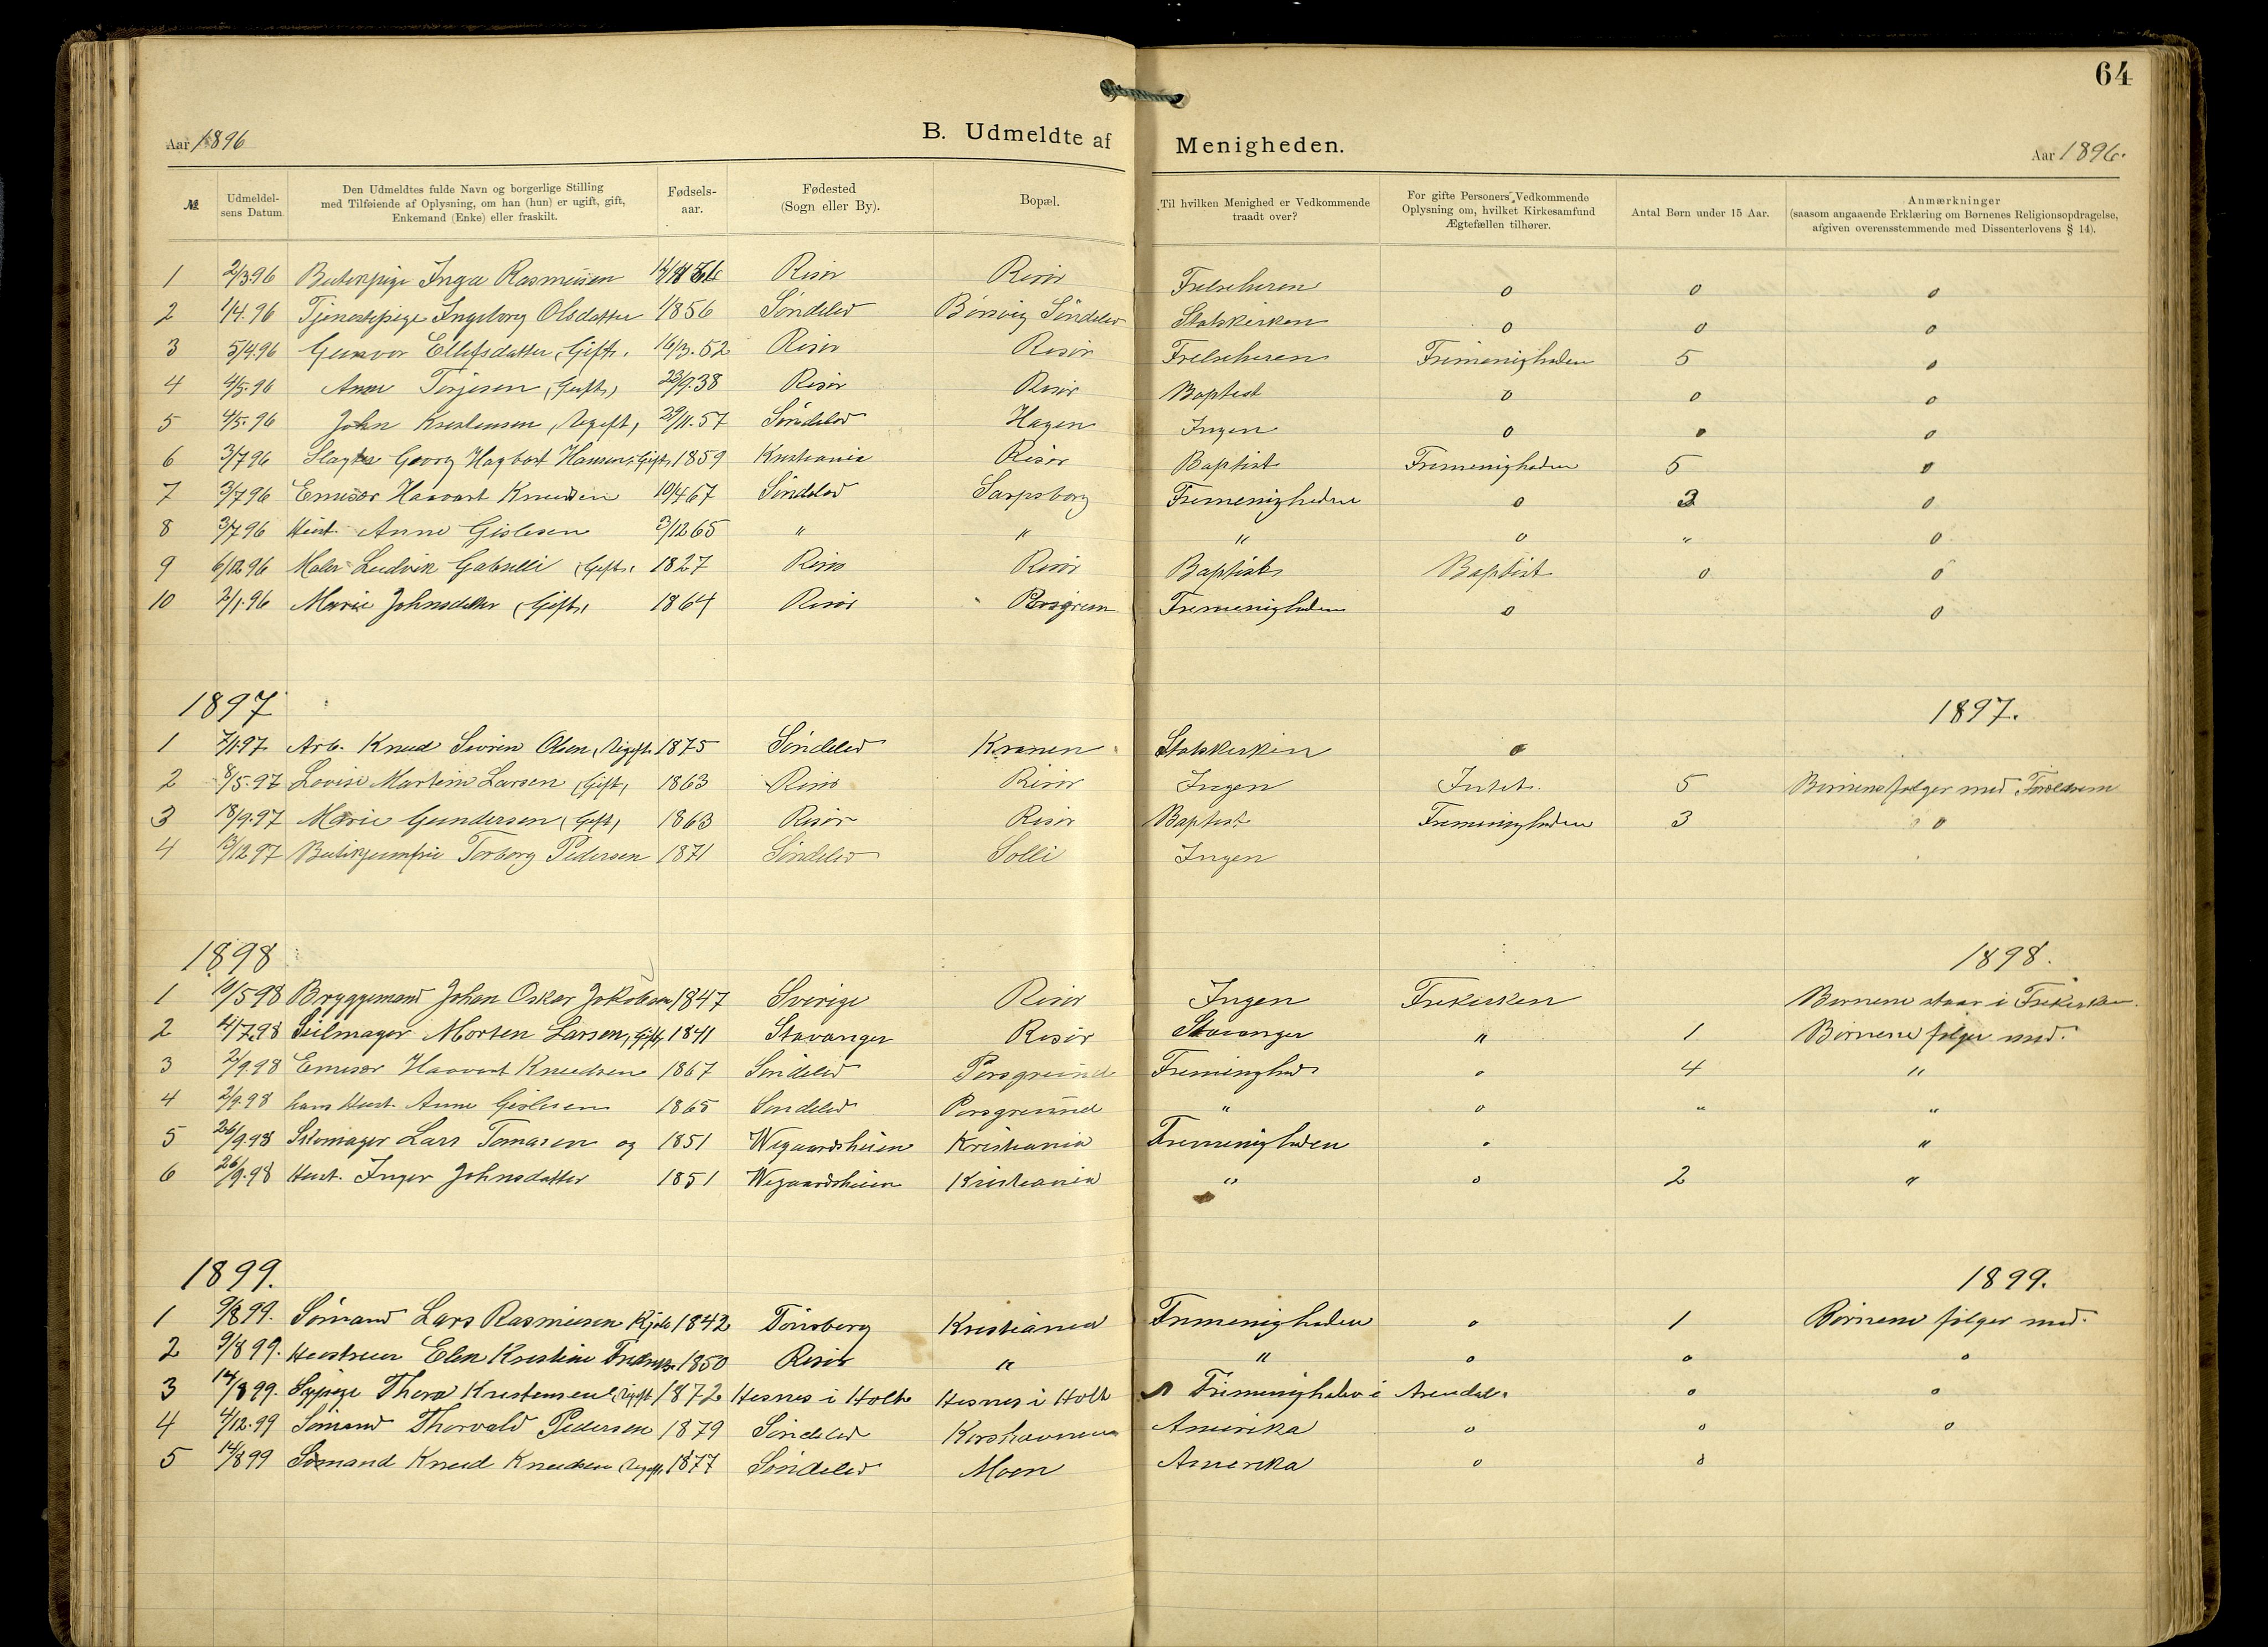 64
Aar 1896 B. Udmeldte af Menigheden. Aar 1896.
№ Udmeldelsens Datum Den Udmeldtes fulde Navn og borgerlige Stilling med Tilføiende af Oplysning, om han (hun) er ugift, gift, Enkemand (Enke) eller fraskilt. Fødselsaar. Fødested (Sogn eller By). Bopæl. Til hvilken Menighed er Vedkommende traadt over? For gifte Personers Vedkommende Oplysning om, hvilket Kirkesamfund Ægtefællen tilhører. Antal Børn under 15 Aar. Anmærkninger (saasom angaaende Erklæring om Børnenes Religionsopdragelse, afgiven overensstemmende med Dissenterlovens § 14).
1 2/3.96 Butikpige Inga Rasmusen Risør Risør Frelseheren o o o
2 1/4.96 Tjenestepige Ingeborg Olsdatter 1856 Søndelev Søndelev Statskirken o o o
3 5/4.96 Gunvor Ellefsdatter, Gift. 16/3.52 Risør Risør Frelseheren Frimenigheden 5 o
4 4/5.96 Anne Terjesen, (Gift) 23/9.38 Risør Risør Baptist o o o
5 4/5.96 John Kristensen, Ugift, 29/11.57 Søndelev Hagen Ingen o o o
6 3/7.96 Slagter Georg Hagbart Hansen, Gift, 1859 Kristiania Risør Baptist Frimenigheden 5 o
7 3/7.96 Emisær Haavart Knudsen 10/4.67 Søndelev Sarpsborg Frimenigheden o 3 o
8 3/7.96 Hust. Anne Gislesen 3/12.65 " " " o " o
9 6/12.96 Maler Ludvik Gabrielli (Gift) 1827 Risør Risør Baptist Baptist o o
10 2/1.96 Marie Johnsdatter (Gift) 1864 Risør Porsgrun Frimenigheden o o
1897 1897.
1 7/1.97 Arb. Knud Søren Olsen, Ugift 1875 Søndelev Kranen Statskirken o
2 8/5.97 Lovise Martine Larsen (Gift) 1863 Risør Risør Ingen Intet. 5 Børnene følger med Forældrene
3 18/9.97 Marie Gundersen (Gift) 1863 Risør Risør Baptist Frimenigheden 3 o
4 13/12.97 Butikjomfru Torborg Pedersen 1871 Søndelev Solli Ingen
1898 1898.
1 10/5.98 Bryggemand Johan Oskar Jakobsen 1847 Sverige Risør Ingen Frikirken Børnene staar i Frikirken.
2 4/7.98 Seilmager Morten Larsen, Gift, 1841 Stavanger Risør Stavanger " 1 Børnene følger med.
3 2/9.98 Emisær Haavart Knudsen 1867 Søndelev Porsgrund o 4 "
4 2/9.98 hans Hust. Anne Gislesen 1865 Søndelev Porsgrund " o " "
5 26/9.98 Lars Tomasen og 1851 Wegaardsheien Kristiania Frimenigheden o "
6 26/9.98 Hust. Inger Johnsdatter 1851 Wegaardsheien Kristiania " o 2 "
1899. 1899.
1 9/8.99. Sømand Lars Rasmusen 1842 Tønsberg Kristiania Frimenigheden o 1 Børnene følger med.
2 9/8.99. Hustruen Elen Kristine 1850 Risør " " o o o
3 14/8.99. Sypige Thora Kristensen, Ugift 1872 Hesnes i Holt Hesnes i Holt Frimenigheden i Arendal. o o
4 4/12.99 Sømand Thorvald Pedersen 1879 Søndelev Korshavnen Amerika o o o
5 14/8.99 Sømand Knud Knudsen Ugift, 1877 Søndelev Moen Amerika o o